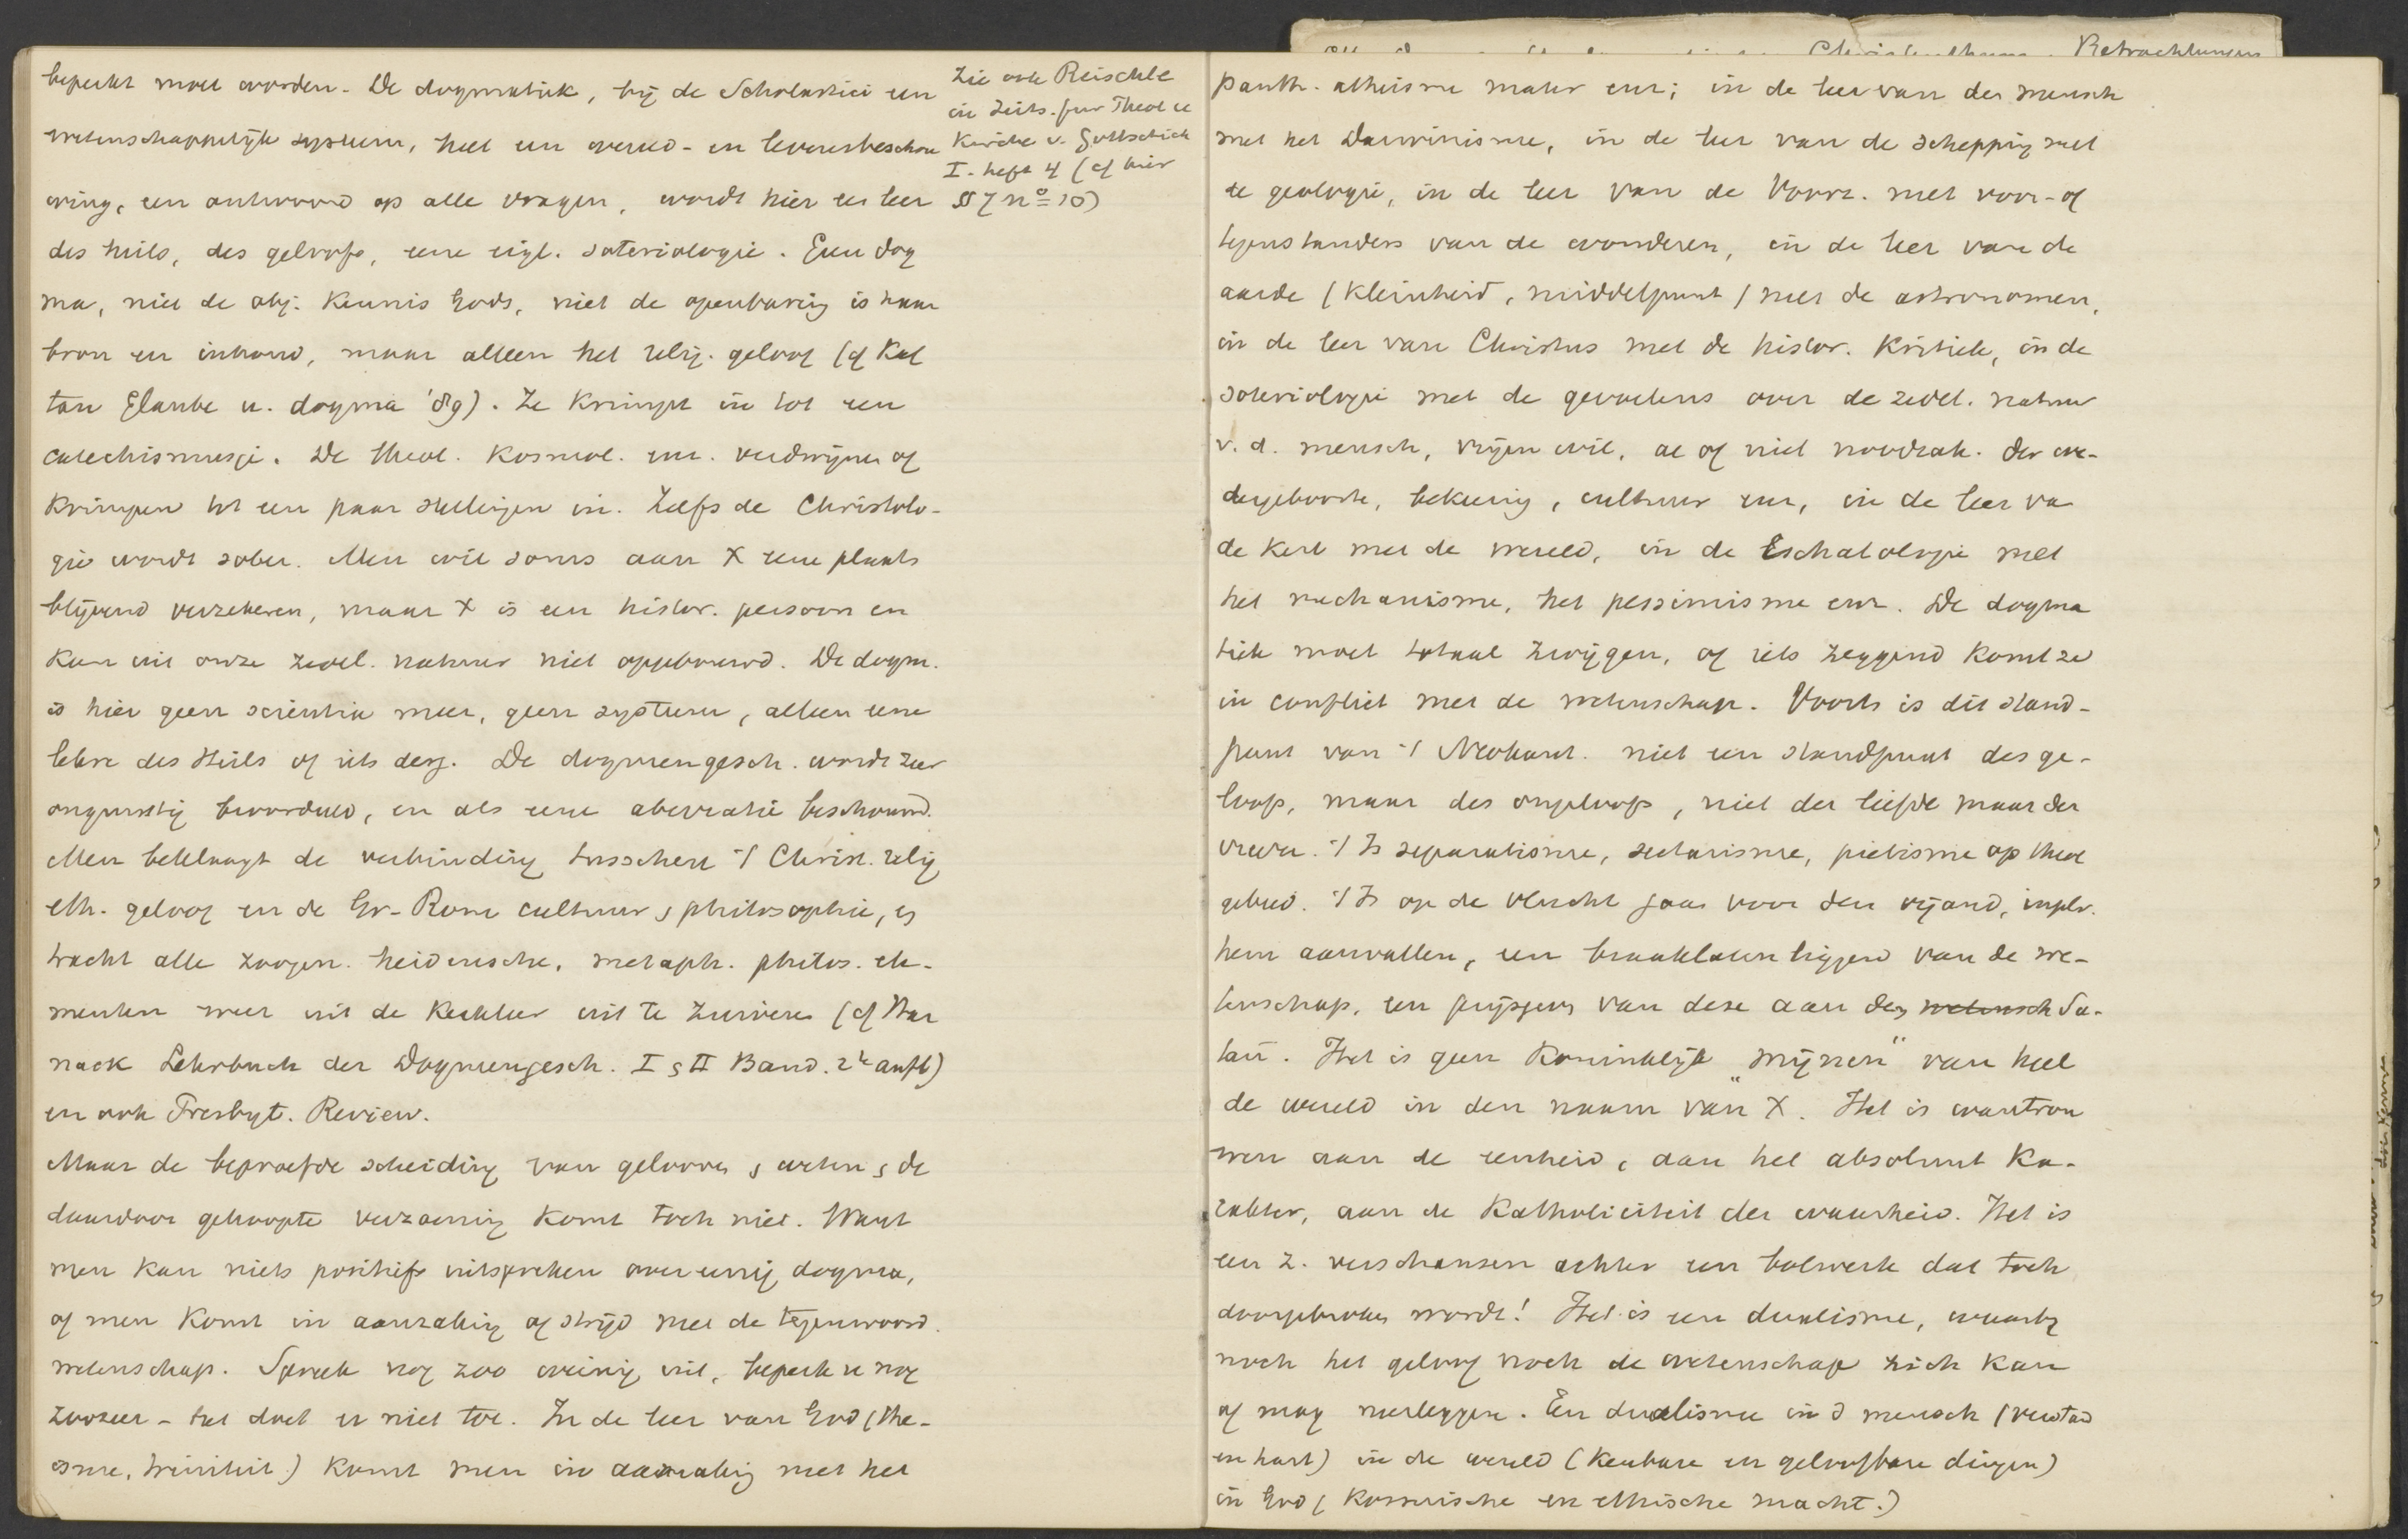 beperkt moet worden. De dogmatiek, bij de Scholastici een
wetenschappelijk systeem, heel een wereld- en levensbeschou
wing, een antwoord op alle vragen, wordt hier een leer
des heils, des geloofs, eene eigl. soteriologie. Geen dog
ma, niet de obj. kennis Gods, niet de openbaring is haar
bron en inhoud, maar alleen het relig. geloof (cf Kaf
tan Glaube u. dogma '89). Ze krimpt in tot een
catechismusje. De theol. kosmol. enz. verdwijnen of
krimpen tot een paar stellingen in. Zelfs de Christolo-
gie wordt sober. Men wil soms aan X eene plaats
blijvend verzekeren, maar X is een histor. persoon en
kan uit onze zedel. natuur niet opgebouwd. De dogm.
is hier geen scientia meer, geen systeem, alleen eene
lehre des Heils of iets derg. De dogmengesch. wordt zeer
ongunstig beoordeeld, en als eene aberratie beschouwd.
Men beklaagt de verbinding tusschen 't Christ. relig
eth. geloof en de Gr-Rom cultuur, philosophie, en
tracht alle zoogen. heidensche, metaph. philos. ele-
menten weer uit de kerkleer uit te zuiveren (cf Har
nack Lehrbuch der Dogmengesch. I & II Band. 2e aufl)
en ook Presbyt. Review.
Maar de beproefde scheiding van gelooven & weten & de
daardoor gehoopte verzoening komt toch niet. Want
men kan niets positiefs uitspreken over eenig dogma,
of men komt in aanraking of strijd met de tegenwoord.
wetenschap. Spreek nog zoo weinig uit, beperk u nog
zoozeer - het doet er niet toe. In de leer van God (the-
isme, triniteit) komt men in aanraking met het
Zie ook Reischle
in Zeits. fur Theol u
Kirche v. Gottschick
I. heft 4 (cf hier
§ 7 no 10)
panth. atheisme mater enz; in de leer van den mensch
met het Darwinisme, in de leer van de schepping met
de geologie, in de leer van de Voorz. met voor- of
tegenstanders van de wonderen, in de leer van de
aarde (kleinheid, middelpunt) met de astronomen,
in de leer van Christus met de histor. kritiek, in de
soteriologie met de gevoelens over de zedel. natuur
v. d. mensch, vrijen wil, al of niet noodzak. der we-
dergeboorte, bekeering, cultuur enz, in de leer va
de kerk met de wereld, in de Eschatologie met
het mechanisme, het pessimisme enz. De dogma
tiek moet totaal zwijgen, of iets zeggend komt ze
in conflict met de wetenschap. Voorts is dit stand-
punt van 't Neokant. niet een standpunt des ge-
loofs, maar des ongeloofs, niet der liefde maar der
vrees. 't Is separatisme, sectarisme, pietisme op theol
gebied. 't Is op de vlucht gaan voor den vijand, inpl.
hem aanvallen, een braaklaten liggend van de we-
tenschap, een prijsgeven van deze aan den wetensch Sa-
tan. Het is geen koninklijk „mijnen" van heel
de wereld in den naam van X. Het is wantrou
wen aan de eenheid, aan het absoluut ka-
rakter, aan de Katholiciteit der waarheid. Het is
een z. verschansen achter een bolwerk dat toch
doorgebroken wordt! Het is een dualisme, waarbij
noch het geloof noch de wetenschap zich kan
of mag neerleggen. Een dualisme in d mensch (verstand
en hart) in de wereld (kenbare en geloofbare dingen)
in God (kosmische en ethische macht.)